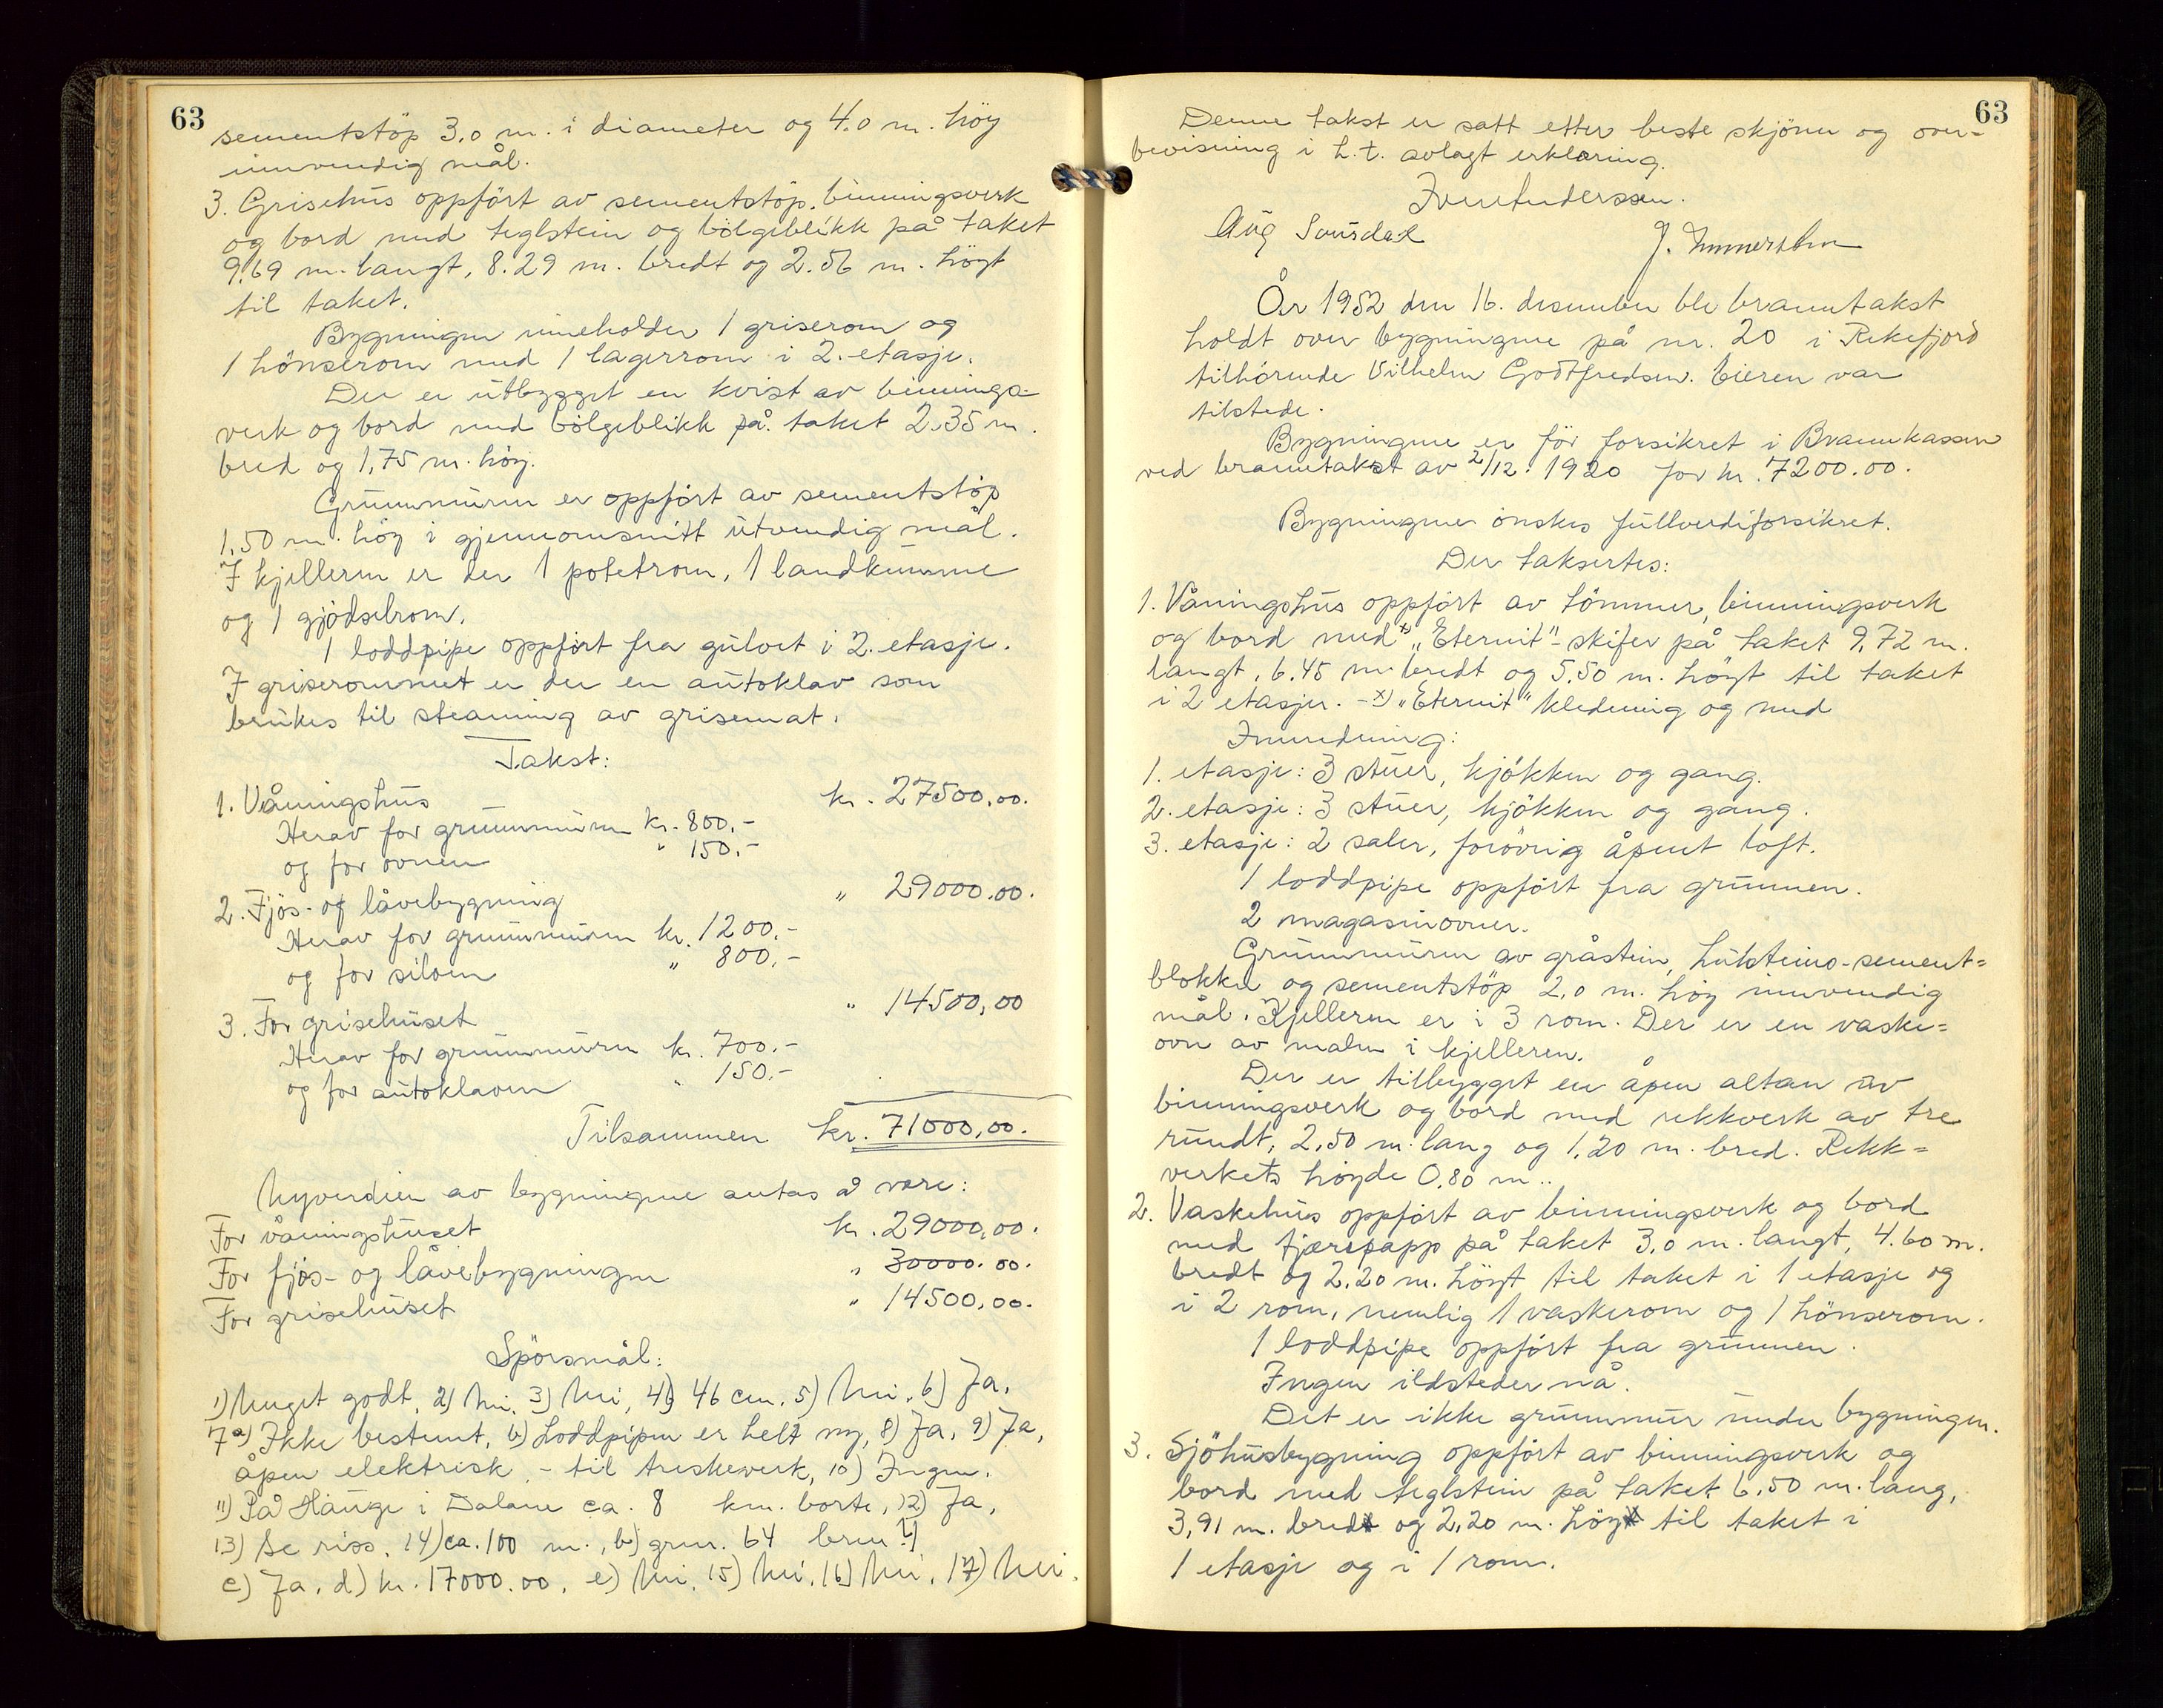 63
sementstöp 3,0 m. i diameter og 4,0 m. höy
innvendig mål.
3. Grisehus oppfört av sementstöp, binningsverk
og bord med teglstein og bölgeblikk på taket
9,69 m. langt, 8.29 m. bredt og 2.56 m. högt
til taket.
Bygningen inneholder 1 griserom og
1 hönserom med 1 lagerrom i 2. etasje.
Der er utbygget en kvist av binnings-
verk og bord med bölgeblikk på taket 2,35 m.
bred og 1,75 m. höy.
Grunnmuren er oppfört av sementstöp
1,50 m. höy i gjennomsnitt utvendig mål.
I kjelleren er der 1 potetrom, 1 landkumme
og 1 gjödselrom.
1 loddpipe oppfört fra gulvet i 2. etasje.
I griserommet er der en autoklav som
brukes til steaming av grisemat.
Takst:
1. Våningshus kr. 27500,00.
Herav for grunnmuren kr. 800,-
og for ovnen " 150,-
2. Fjös- og låvebygning " 29000,00.
Herav for grunnmuren kr. 1200,-
og for siloen " 800,-
3. For grisehuset " 14500,00
Herav for grunnmuren kr. 700,-
og for autoklaven " 150,-
Tilsammen kr. 71000,00.
Nyverdien av bygningene antas å være:
For våningshuset kr. 29000,00.
For fjös- og låvebygningen " 30000.00.
For grisehuset " 14500,00.
Spörsmål:
1) Meget godt, 2) Nei, 3) Nei, 4) 46 cm, 5) Nei, 6) Ja,
7a) Ikke bestemt, b) Loddpipen er helt ny, 8) Ja, 9) Ja,
åpen elektrisk, - til treskeverk, 10) Ingen.
11) På Hauge i Dalane ca. 8 km. borte, 12) Ja,
13) Se riss, 14) ca. 100 m., b) grnr. 64 brnr. 4
c) Ja, d) kr. 17000.00, e) Nei, 15) Nei, 16) Nei, 17) Nei.
63
Denne takst er satt etter beste skjönn og over-
bevisning i h.t. avlagt erklæring.
Aug Sunsdal
År 1952 den 16. desember ble branntakst
holdt over bygningene på nr. 20 i Rekefjord
tilhörende Vilhelm Godtfredsen. Eieren var
tilstede.
Bygningene er för forsikret i Brannkassen
ved branntakst av 2/12. 1920 for kr. 7200.00.
Bygningene önskes fullverdiforsikret.
Der taksertes:
1. Våningshus oppfört av tömmer, binningsverk
og bord med x) "Eternit"-skifer på taket 9,72 m.
langt, 6.45 m bredt og 5.50 m. högt til taket
i 2 etasjer. - x) "Eternit" kledning og med
Innredning:
1. etasje: 3 stuer, kjökken og gang.
2. etasje: 3 stuer, kjökken og gang.
3. etasje: 2 saler, forövrig åpent loft.
1 loddpipe oppfört fra grunnen.
2 magasinovner.
Grunnmuren av gråstein, hulsteins-sement-
blokker og sementstöp 2,0 m. höy innvendig
mål. Kjelleren er i 3 rom. Der er en vaske-
ovn av malm i kjelleren.
Der er tilbygget en åpen altan av
binningsverk og bord med rekkverk av tre
rundt, 2,50 m. lang og 1,20 m. bred. Rekk-
verkets höyde 0,80 m..
2. Vaskehus oppfört av binningsverk og bord
med tjærepapp på taket 3,0 m. langt, 4.60 m.
bredt og 2,20 m. högt til taket i 1 etasje og
i 2 rom, nemlig 1 vaskerom og 1 hönserom.
1 loddpipe oppfört fra grunnen.
Ingen ildsteder nå.
Det er ikke grunnmur under bygningen.
3. Sjöhusbygning oppfört av binningsverk og
bord med teglstein på taket 6,50 m. lang,
3,91 m. bred og 2,20 m. höy til taket i
1 etasje og i 1 rom.